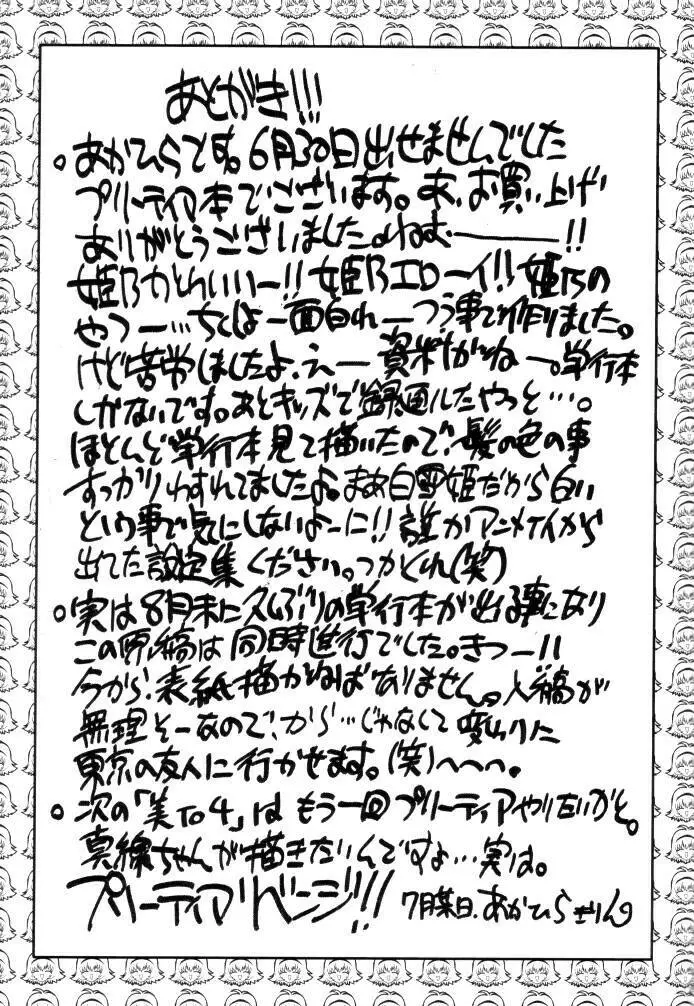 あとがき!!!
。あかひらです。6月30日出せませんでした
プリーティア本でございます。あ、お買い上げ
ありがとうございました。ねむ———!!
姫乃かわいいー!! 姫乃エローイ!! 姫乃の
やつー…ちくしょー面白れーつう事で作りました。
けど苦労しましたよ、えー資料がねー。単行本
しかないです。あとキッズで録画したやつと…。
ほとんど単行本見て描いたので、髪の色の事
すっかりわすれてましたよ。まあ白雪姫だから白い
という事で気にしないよーに!! 誰かアニメイトから
出てた設定集ください。つかくれ(笑)
。実は8月末に久しぶりの単行本が出る事になり
この原稿は同時進行でした。きつー!!
今から、表紙描かねばありません。入稿が
無理そーなので、から…じゃなくて変わりに
東京の友人に行かせます。(笑)へへへ。
。次の「美To4」はもう一回プリーティアやりたいかと。
真綿ちゃんが描きたいんですよ…実は。
プリーティアリベンジ!! 7月某日、あかひらきりん